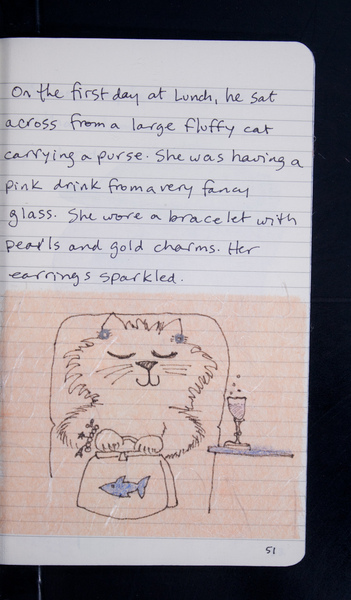 On the first day at Lunch, he sat
across from a large fluffy cat
carrying a purse. She was having a
pink drink from a very fancy
glass. She wore a bracelet with
pearls and gold charms. Her
earrings sparkled.
51